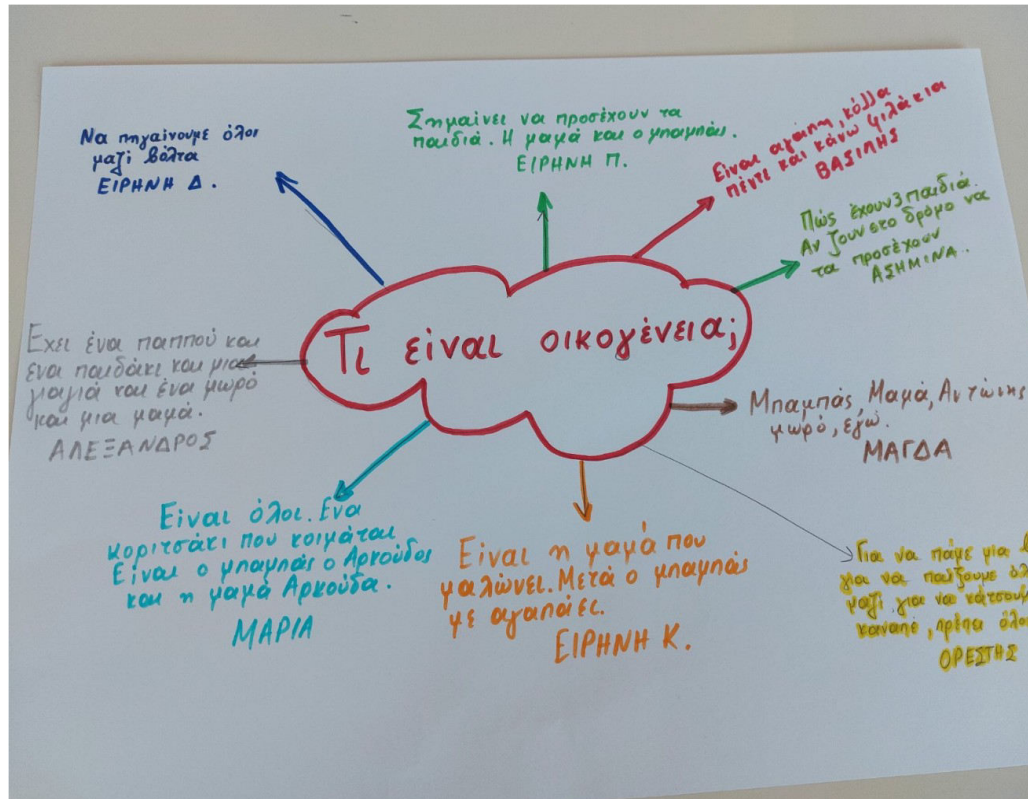 Να πηγαίνουμε όλοι
μαζί βόλτα
ΕΙΡΗΝΗ Δ.
Σημαίνει να προσέχουν τα
παιδιά. Η μαμά και ο μπαμπάς.
ΕΙΡΗΝΗ Π.
Είναι αγάπη, κόλλα
πέντε και κάνω φιλάκια
ΒΑΣΙΛΗΣ
Πώς έχουν 3 παιδιά.
Αν ζουν στο δρόμο να
τα προσέχουν
ΑΣΗΜΙΝΑ..
Τι είναι οικογένεια;
Έχει ένα παππού και
ένα παιδάκι και μια
γιαγιά και ένα μωρό
και μια μαμά.
ΑΛΕΞΑΝΔΡΟΣ
Μπαμπάς, Μαμά, Αντώνης
μωρό, εγώ.
ΜΑΓΔΑ
Είναι όλοι. Ένα
κοριτσάκι που κοιμάται
Είναι ο μπαμπάς ο Αρκούδος
και η μαμά Αρκούδα.
ΜΑΡΙΑ
Είναι η μαμά που
μαλώνει. Μετά ο μπαμπάς
με αγαπάει.
ΕΙΡΗΝΗ Κ.
Για να πάμε μια
για να παίξουμε
μαζί, για να
καναπέ, πρέπει
ΟΡΕΣΤΗΣ